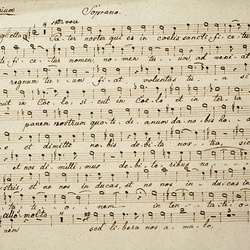 Soprano.
sotto voce
ter noster qui es in coelis sancti, fi, ce, tur
fi, ce, tur nomen, nomen tu, um ad veni at
regnum tu, um fi, at voluntas tu, a
ut in Coe, lo, si cut in Coe, lo, et in ter, ra
panem nostrum quo, ti, di, anum da, no, bis ho,
et dimitto nobis debita nos, tra, sic,
et nos di, mitti, mus de, bi, to, ribus no,
stris, et ne nos in ducas, et ne nos in, du, cas in
o, nem in, ten, ta, ti, o
all.o molto
nem sed li, bera nos a, ma, lo,